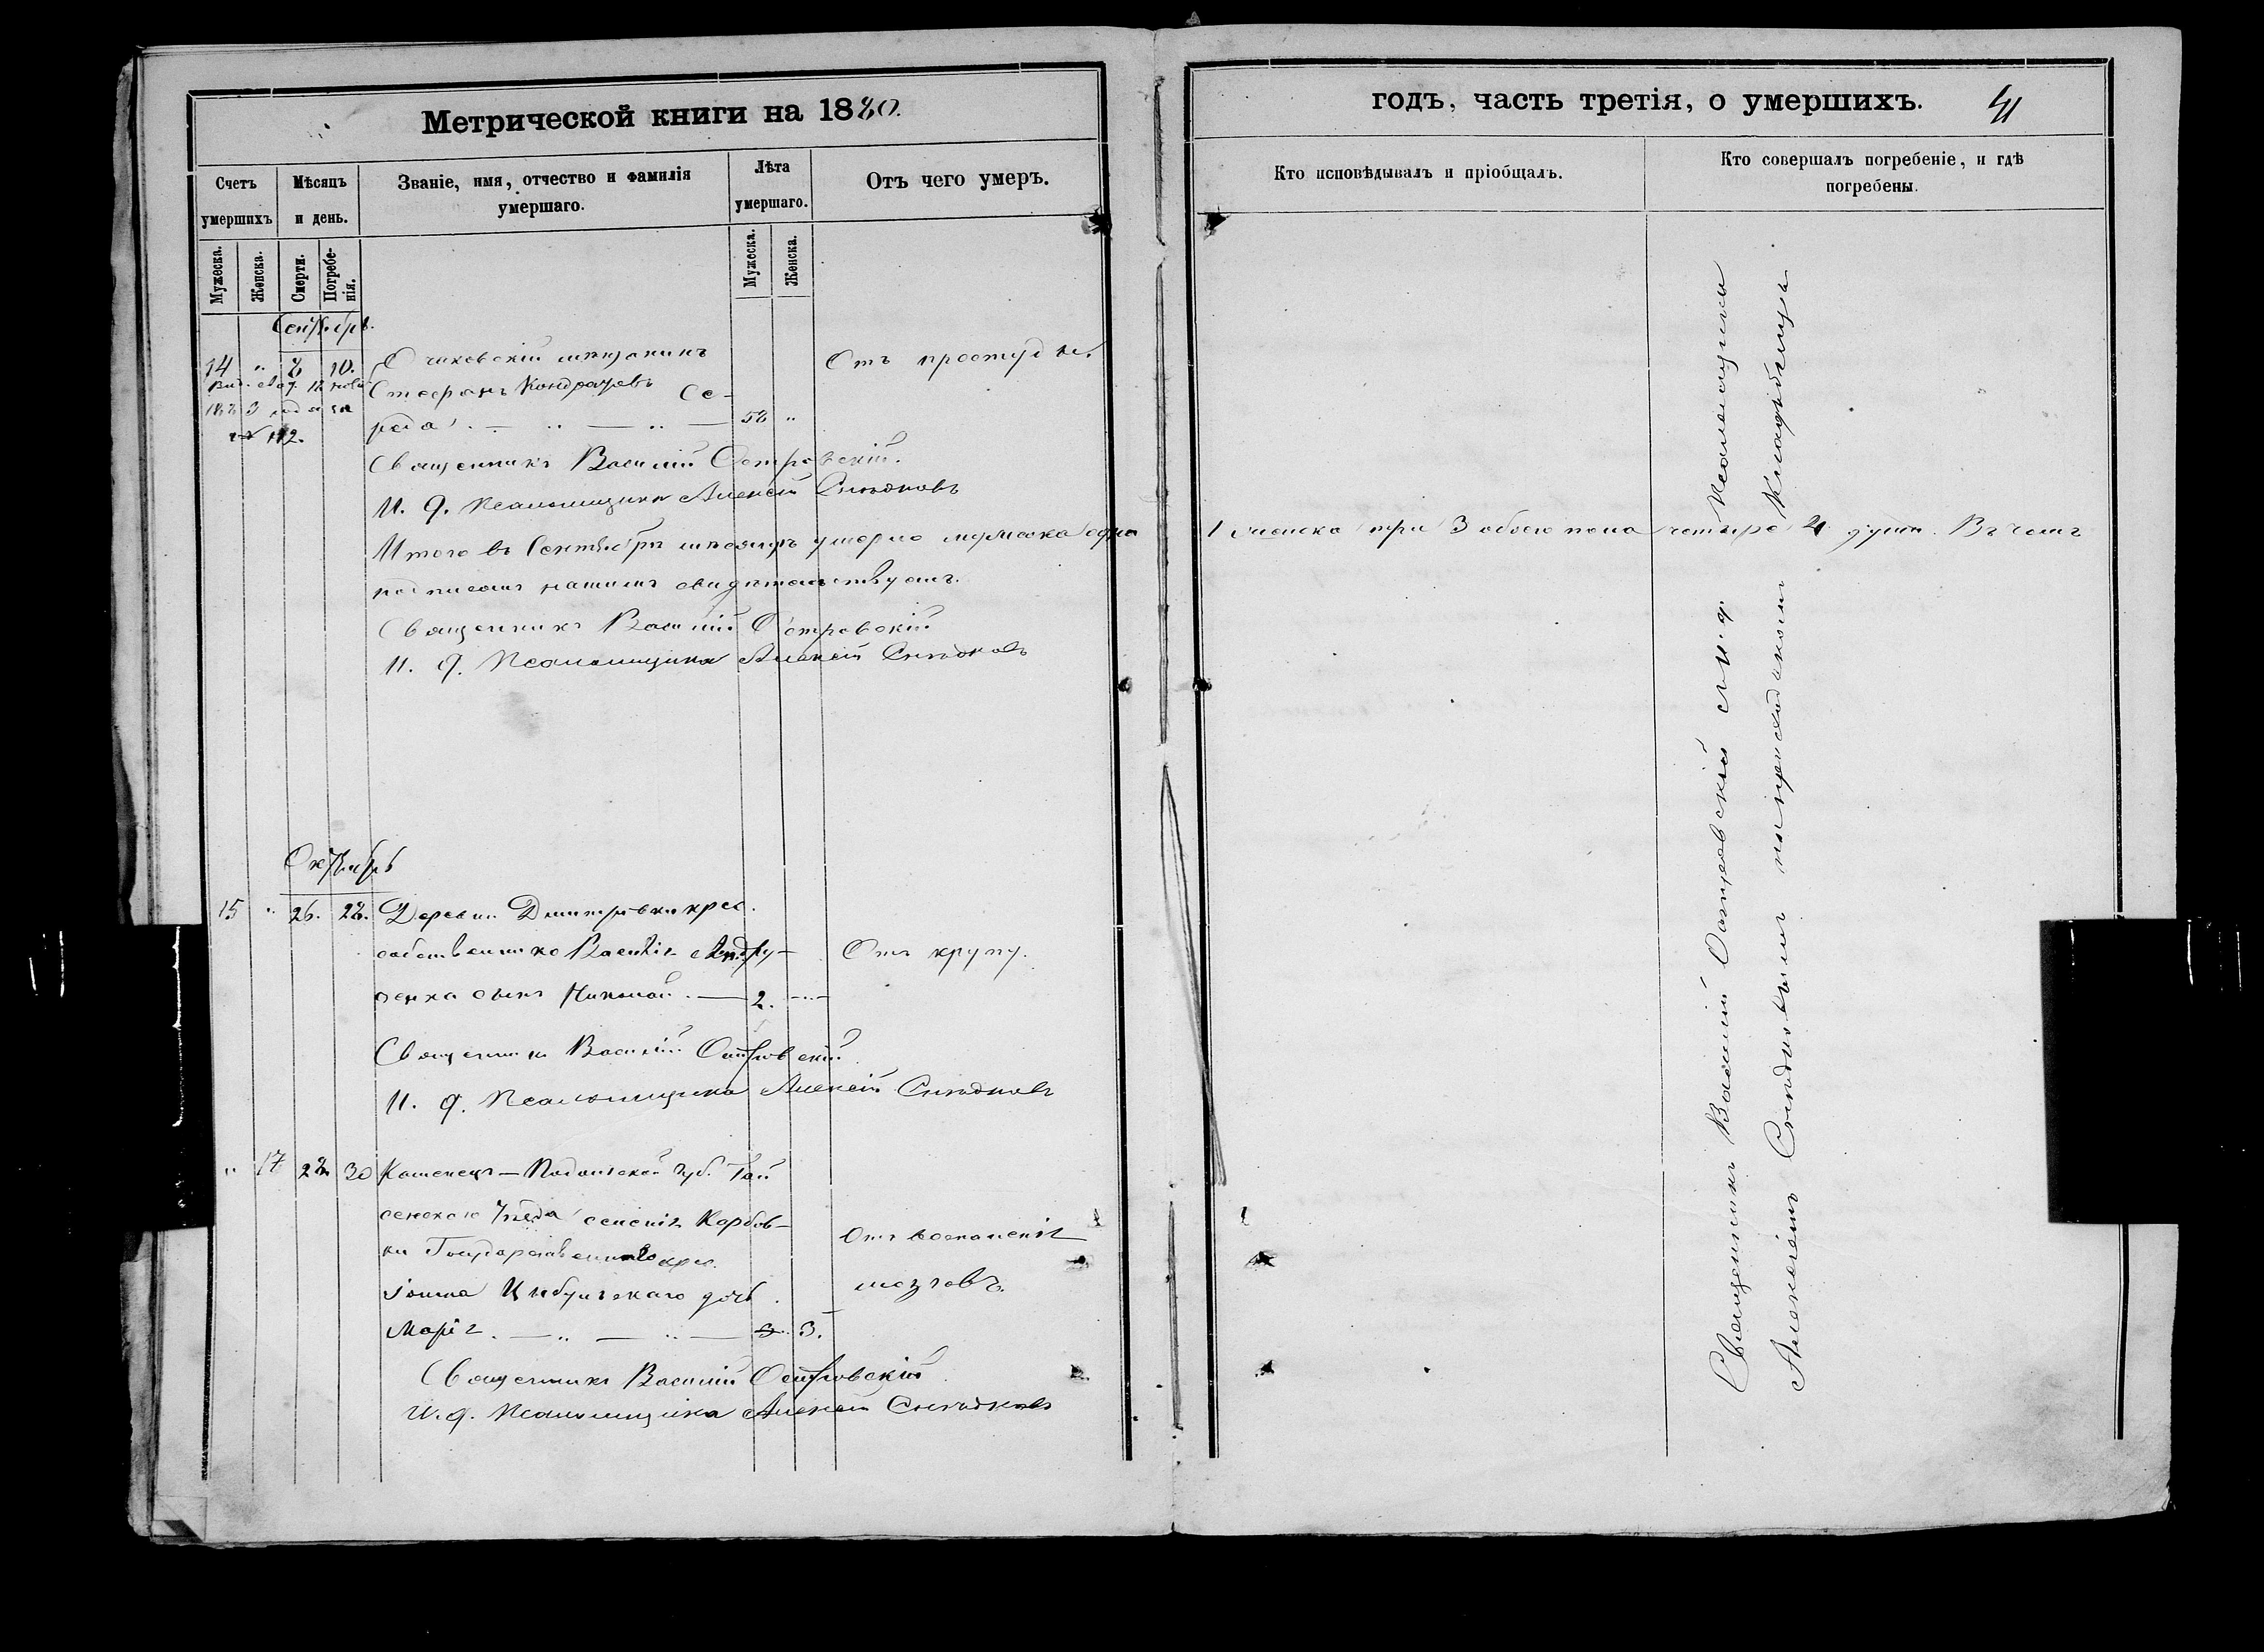 Метрической книги на 1880.
Счетъ умершихъ
Мѣсяцъ и день.
Званіе, имя, отчество и фамилія умершаго.
Лѣта умершаго.
Отъ чего умеръ.
Мужеска.
Женска.
Смерти.
Погребенія.
Мужеска.
Женска.
Сентябрь.
14 " 8 10. Очаковскій мѣщанинъ
Отъ простуды.
Стефанъ Кондратовъ Се-
реда 58 "
Священникъ Василій Островскій.
И. д. Псаломщика Алексій
Итого въ Сентябрѣ мѣсяцѣ умерло мужеска одна
подписомъ нашимъ свидѣтельствуемъ.
Священникъ Василій Островскій
И. д. Псаломщика Алексій
Октябрь
15 " 26. 28. Деревни Дмитровки крес.
собственника Василія Андру-
Отъ крупу.
сынъ Николай. — 2. —
Священникъ Василій Островскій
И. д. Псаломщика Алексій
" 17 28 30 Каменецъ-Подольской губ. Гай
сенскаго уѣзда селенія
Государственнаго крес.
дочь
Марія. 3.
Отъ воспаленія
мозговъ.
Священникъ Василій Островскій
И. д. Псаломщика Алексій
годъ, часть третія, о умершихъ.
41
Кто исповѣдывалъ и пріобщалъ.
Кто совершалъ погребеніе, и гдѣ погребены.
1 женска три 3 обоего пола четыре 4 души. Въ чемъ
Священникъ Василій Островскій съ И. д. Псаломщика
Алексіемъ на приходскомъ кладбищѣ